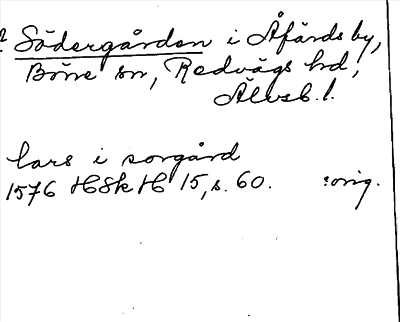 Södergården i Åfärds by,
Böne sn, Redvägs hd,
Älvsb. l.
lars i sorgård
1576 HSkH 15, s. 60. :orig.